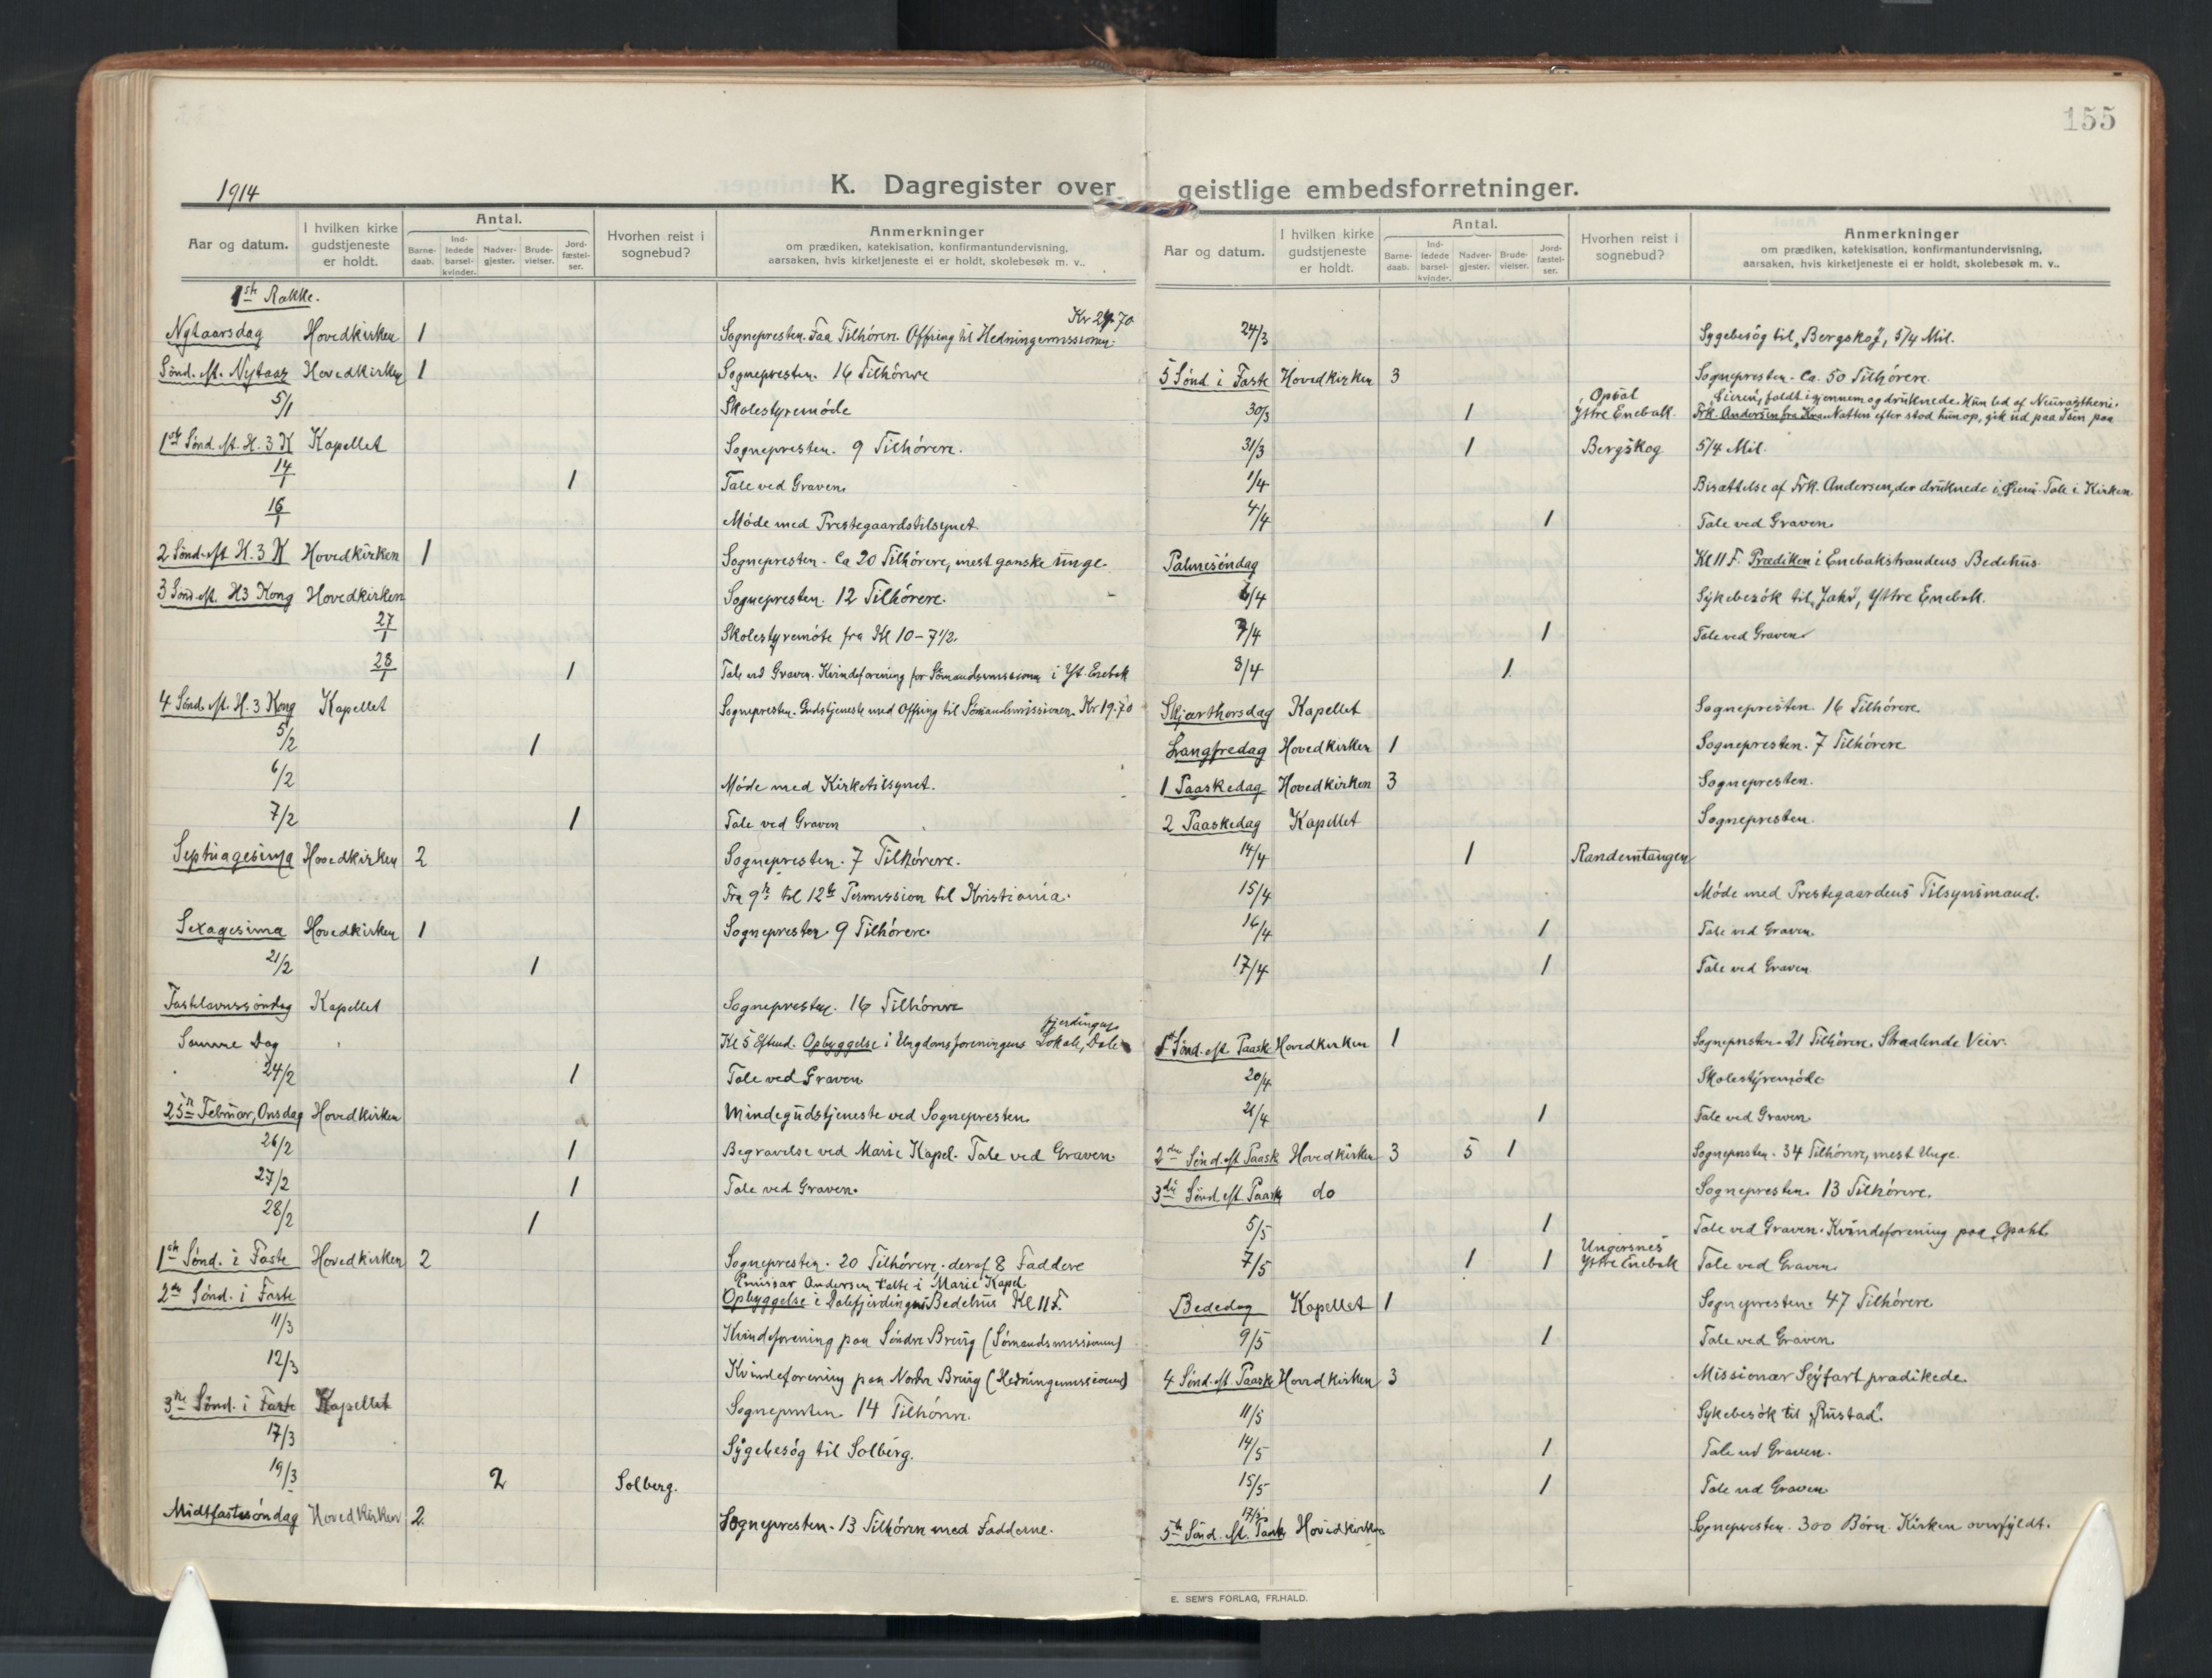 155
1914
K. Dagregister over geistlige embedsforretninger.
Aar og datum. I hvilken kirke gudstjeneste er holdt. Antal. Barne-daab. Ind-ledede barsel-kvinder. Nadver-gjester. Brude-vielser. Jord-fæstel-ser. Hvorhen reist i sognebud? Anmerkninger om prædiken, katekisation, konfirmantundervisning, aarsaken, hvis kirketjeneste ei er holdt, skolebesøk m. v..
1ste Række.
Nytaarsdag Hovedkirken 1 Sognepresten. Faa Tilhörere. Offring til Hedningemissionen. Kr 24.70
Sönd. eft. Nytaar Hovedkirken 1 Sognepresten. 16 Tilhörere
5/1 Skolestyremöde
1ste Sönd. eft. H. 3 K Kapellet Sognepresten. 9 Tilhörere.
14/1 1 Tale ved Graven.
16/1 Möde med Prestegaardstilsynet
2 Sönd. eft H. 3 K Hovedkirken 1 Sognepresten. Ca 20 Tilhörere, mest ganske unge.
3 Sönd. eft. H3 Kong Hovedkirken Sognepresten. 12 Tilhörere.
27/1 Skolestyremöte fra Kl 10-7½.
28/1 1 Tale ved Graven. Kvindeforening for Sömandsmissionen i Yt. Enebak
4 Sönd. eft. H. 3 Kong Kapellet Sognepresten. Gudstjeneste med Offring til Sömandsmissionen. Kr 19.70
5/2 1
6/2 Möde med Kirketilsynet.
7/2 1 Tale ved Graven
Septuagesima Hovedkirken 2 Sognepresten. 7 Tilhörere.
Fra 9de til 12te Permission til Kristiania.
Sexagesima Hovedkirken 1 Sognepresten 9 Tilhörere.
21/2 1
Fastelavnssöndag Kapellet Sognepresten. 16 Tilhörere
Samme Dag Kl 5 Efterd. Opbyggelse i Ungdomsforeningens Lokale, Dalefjerdingen
24/2 1 Tale ved Graven
25de Februar, Onsdag Hovedkirken Mindegudstjeneste ved Sognepresten.
26/2 1 Begravelse ved Marie Kapel. Tale ved Graven
27/2 1 Tale ved Graven.
28/2 1
1ste Sönd. i Faste Hovedkirken 2 Sognepresten. 20 Tilhörere. deraf 8 Faddere
Andersen talte i Marie Kapel
2den Sönd. i Faste Opbyggelse i Dalefjerdingens Bedehus Kl 11 F.
11/3 Kvindeforening paa Söndre Breiig (Sömandsmissionen)
12/3 Kvindeforening paa Nordre Breiig (Hedningemissionen)
3die Sönd. i Faste Kapellet Sognepresten 14 Tilhörere.
17/3 Sygebesög til Solberg.
19/3 2 Solberg.
Midtfastesöndag Hovedkirken 2. Sognepresten. 13 Tilhörere med Fadderne.
Aar og datum. I hvilken kirke gudstjeneste er holdt. Antal. Barne-daab. Ind-ledede barsel-kvinder. Nadver-gjester. Brude-vielser. Jord-fæstel-ser. Hvorhen reist i sognebud? Anmerkninger om prædiken, katekisation, konfirmantundervisning, aarsaken, hvis kirketjeneste ei er holdt, skolebesøk m. v..
24/3 Sygebesög til "Bergskog", 5/4 Mil.
5 Sönd i Faste Hovedkirken 3 Sognepresten. Ca. 50 Tilhörere.
Opsal Öieren, faldt igjennem og druknede. Hun led af Neurastheni.
30/3 1 Ystre Enebak. Frk. Andersen fra Kra. Natten efter stod hun op, gik ud paa Isen paa
31/3 1 Bergskog 5/4 Mil.
1/4 Bisættelse af Frk. Andersen, der druknede i Öieren. Tale i Kirken
4/4 1 Tale ved Graven.
Palmesöndag Kl 11 F. Prædiken i Enebakstrandens Bedehus.
6/4 Sykebesök til Jakö, Ytre Enebak.
7/4 1 Tale ved Graven
8/4 1.
Skjærthorsdag Kapellet Sognepresten. 16 Tilhörere
Langfredag Hovedkirken 1 Sognepresten. 7 Tilhörere
1 Paaskedag Hovedkirken 3 Sognepresten.
2 Paaskedag Kapellet Sognepresten.
14/4 1 Randemtangen
15/4 Möde med Prestegaardens Tilsynsmand.
16/4 1 Tale ved Graven.
17/4 1 Tale ved Graven
1ste Sönd. eft. Paaske Hovedkirken 1 Sognepresten. 21 Tilhörere. Straalende Veir.
20/4 Skolestyremöde
21/4 1 Tale ved Graven
2den Sönd. eft Paask Hovedkirken 3 5 1 Sognepresten. 34 Tilhörere, mest Unge.
3die Sönd. eft Paaske do Sognepresten. 13 Tilhörere.
5/5 1 Tale ved Graven. Kvindeforening paa Opahl.
7/5 1 1 Ungersnes Ystre Enebak Tale ved Graven.
Bededag Kapellet 1 Sognepresten. 47 Tilhörere.
9/5 1 Tale ved Graven.
4 Sönd. eft. Paaske Hovedkirken 3 Missionær Seyfart prædikede.
11/5 Sykebesök til "Rustad".
14/5 1 Tale ved Graven.
15/5 1 Tale ved Graven
17/5
5te Sönd. eft. Paaske Hovedkirken Sognepresten. 300 Börn. Kirken overfyldt.
E. SEM'S FORLAG, FR.HALD.